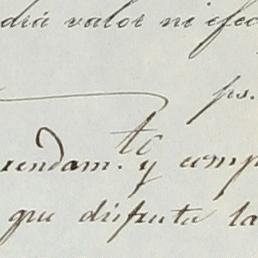 drá valor ni efec
ps.
rrendam.to y comp
que disfruta la